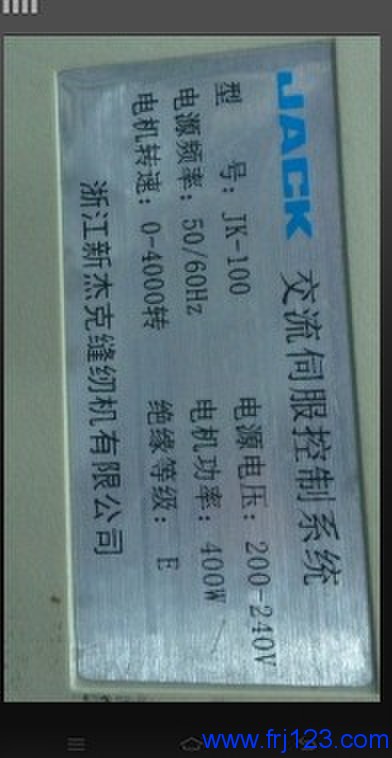 JACK 交流伺服控制系统
型 号：JK-100 电源电压：200-240V
电源频率：50/60Hz 电机功率：400W
电机转速：0-4000转 绝缘等级：E
浙江新杰克缝纫机有限公司
www.frj123.com